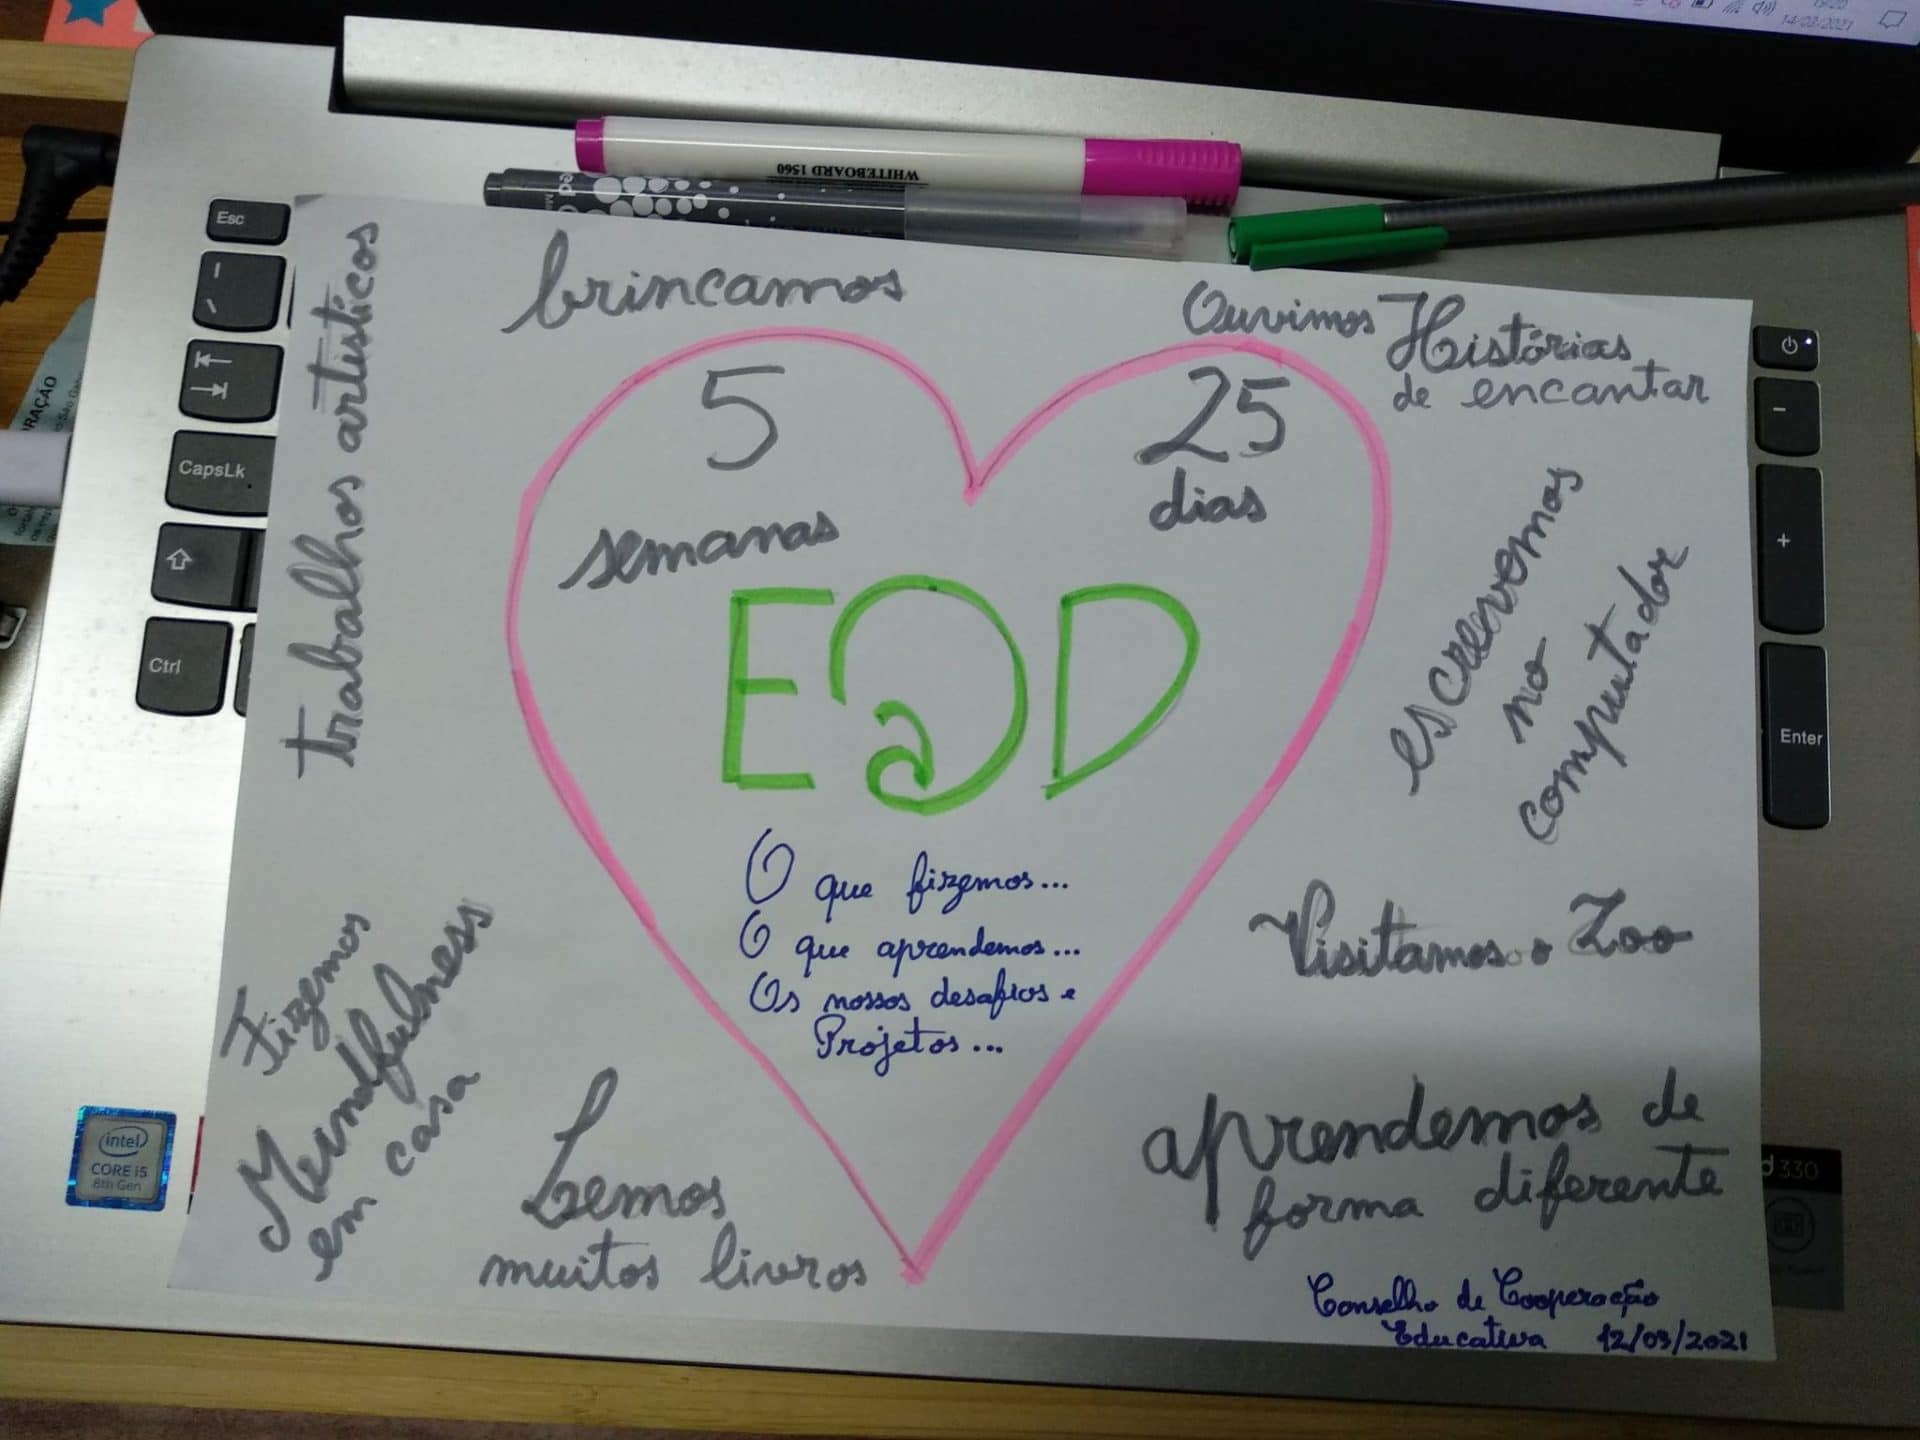 19:20
14/03/2021
WHITEBOARD 1560
Esc
CapsLk
Ctrl
Enter
+
-
RAÇÃO
intel
CORE i5
8th Gen
330
trabalhos artísticos
brincamos
Ouvimos Histórias
de encantar
5
semanas
25
dias
E@D
O que fizemos...
O que aprendemos...
Os nossos desafios e
Projetos...
escrevemos
no
computador
Visitamos o Zoo
Fizemos
Mindfulness
em casa
Lemos
muitos livros
aprendemos de
forma diferente
Conselho de Cooperação
Educativa 12/03/2021